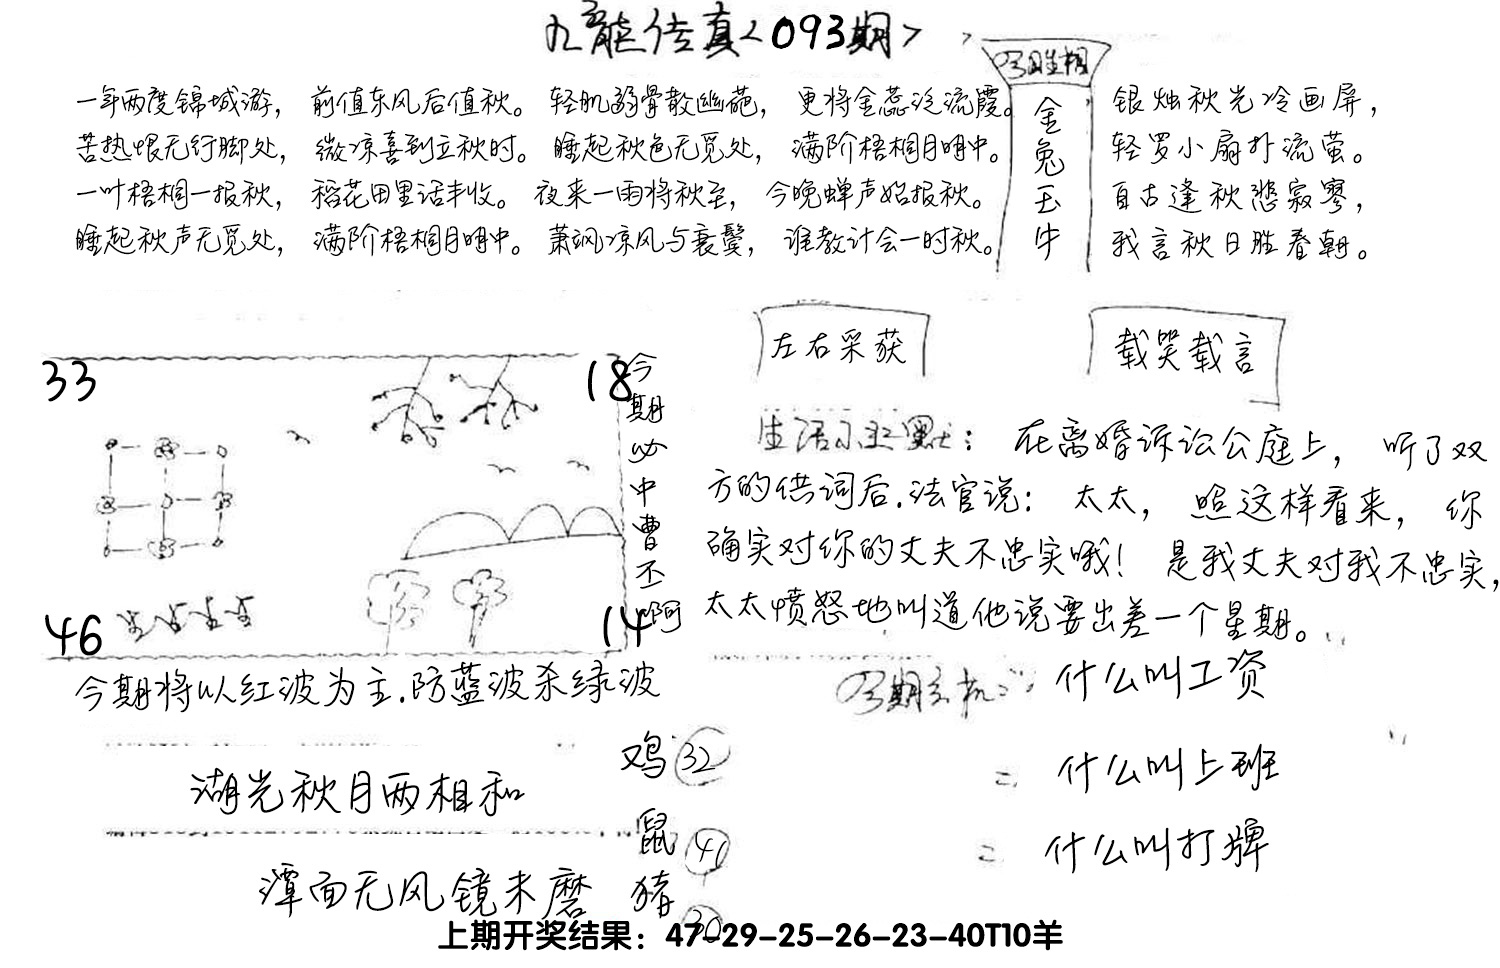 九龙传真<093期>
今期生相
金兔玉牛
一年两度锦城游，前值东风后值秋。轻肌弱骨散幽葩，更将金蕊泛流霞。
苦热恨无行脚处，微凉喜到立秋时。睡起秋色无觅处，满阶梧桐月明中。
一叶梧桐一报秋，稻花田里话丰收。夜来一雨将秋至，今晚蝉声始报秋。
睡起秋声无觅处，满阶梧桐月明中。萧飒凉风与衰鬓，谁教计会一时秋。
银烛秋光冷画屏，
轻罗小扇扑流萤。
自古逢秋悲寂寥，
我言秋日胜春朝。
33
18
46
14
今期必中曹丕啊
左右采获
载笑载言
生活幽默：在离婚诉讼公庭上，听了双
方的供词后.法官说：太太，照这样看来，你
确实对你的丈夫不忠实哦！是我丈夫对我不忠实，
太太愤怒地叫道他说要出差一个星期。
今期将以红波为主.防蓝波杀绿波
湖光秋月两相和
潭面无风镜未磨
鸡 32
鼠 41
猪 30
今期玄机：什么叫工资
= 什么叫上班
= 什么叫打牌
上期开奖结果：47-29-25-26-23-40T10羊